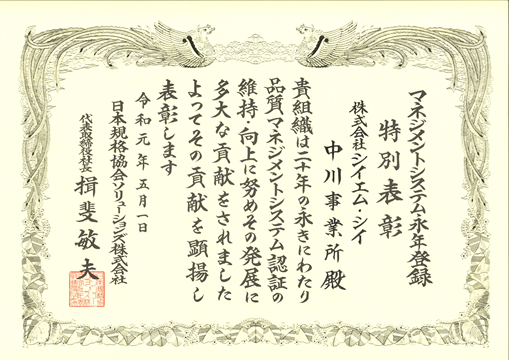 マネジメントシステム永年登録
特別表彰
株式会社シイエム・シイ
中川事業所殿
貴組織は二十年の永きにわたり
品質マネジメントシステム認証の
維持・向上に努めその発展に
多大な貢献をされました
よってその貢献を顕揚し
表彰します
令和元年五月一日
日本規格協会ソリューションズ株式会社
代表取締役社長 揖斐敏夫